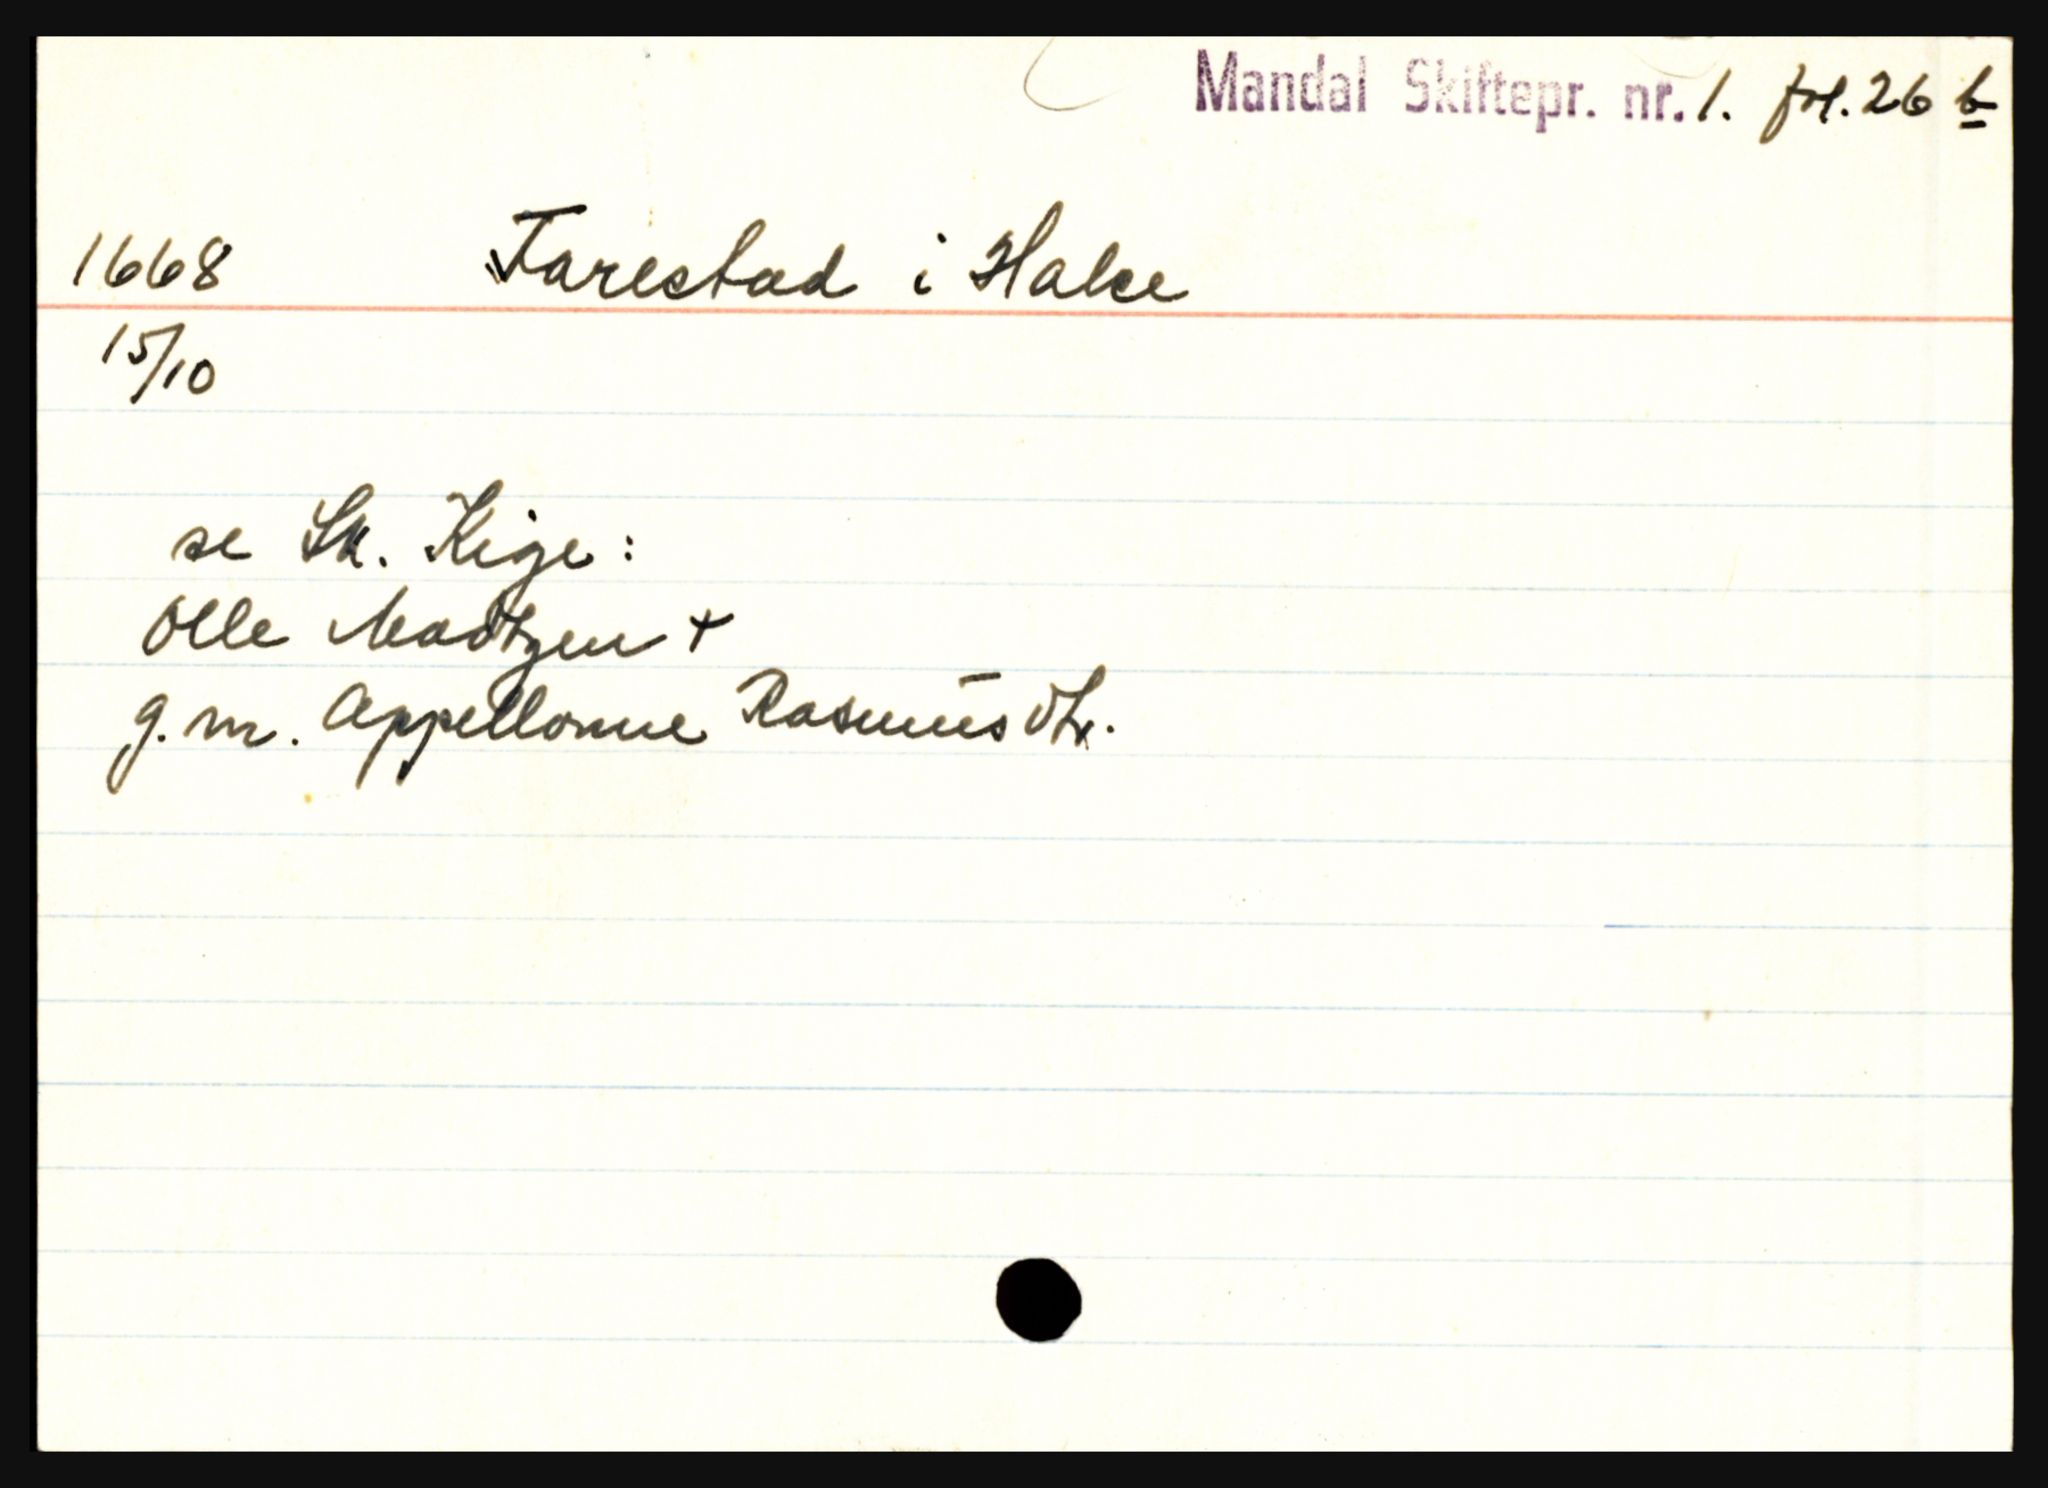 Mandal Skiftepr. nr. 1. fol. 26 b
1668 Tarestad i Halse
15/10
se Sk. Kige:
Olle Madtzen +
g.m. Appellonne Rasmusdtr.